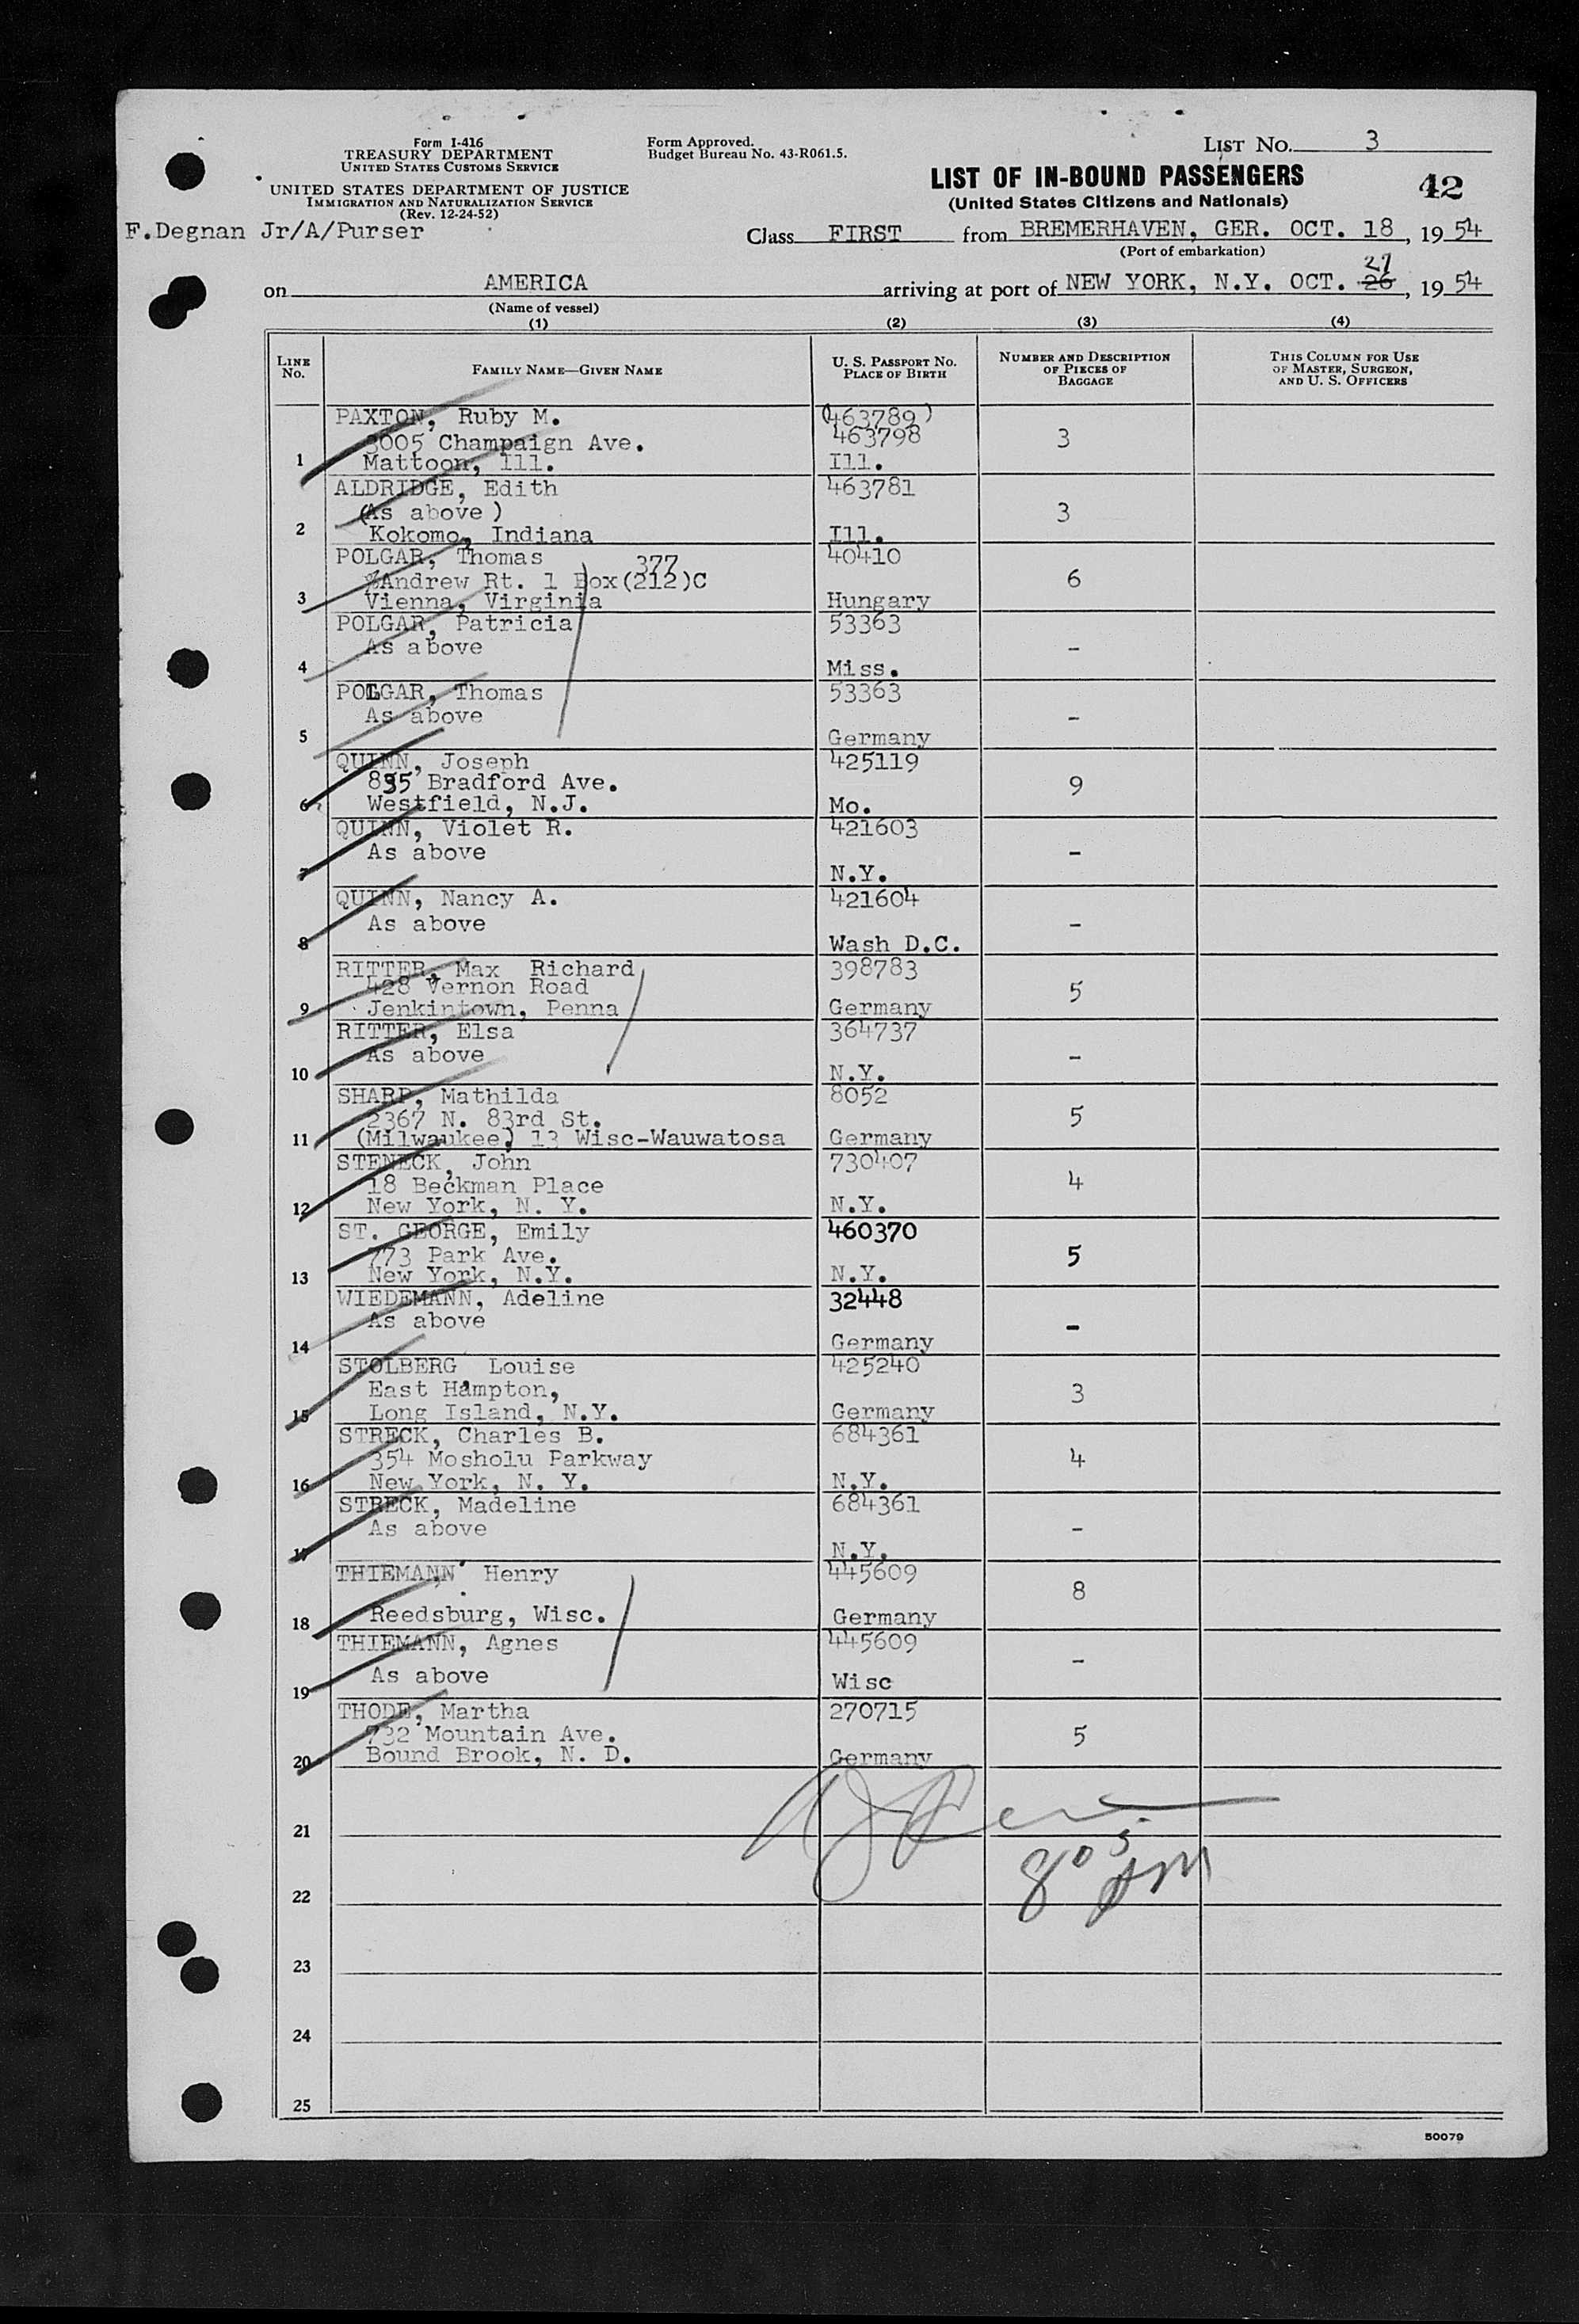 Form I-416
TREASURY DEPARTMENT
UNITED STATES CUSTOMS SERVICE
UNITED STATES DEPARTMENT OF JUSTICE
IMMIGRATION AND NATURALIZATION SERVICE
(Rev. 12-24-52)
F.Degnan Jr/A/Purser
Form Approved.
Budget Bureau No. 43-R061.5.
LIST No. 3
LIST OF IN-BOUND PASSENGERS
(United States Citizens and Nationals)
42
Class FIRST from BREMERHAVEN, GER. OCT. 18, 1954
(Port of embarkation)
27
on AMERICA arriving at port of NEW YORK, N.Y. OCT. 26, 1954
(Name of vessel)
(1) (2) (3) (4)
LINE No. FAMILY NAME—GIVEN NAME U. S. PASSPORT NO. PLACE OF BIRTH NUMBER AND DESCRIPTION OF PIECES OF BAGGAGE THIS COLUMN FOR USE OF MASTER, SURGEON, AND U. S. OFFICERS
PAXTON, Ruby M. (463789)
3005 Champaign Ave. 463798 3
1 Mattoon, Ill. Ill.
ALDRIDGE, Edith 463781
(As above) 3
2 Kokomo, Indiana Ill.
POLGAR, Thomas 377 40410
%Andrew Rt. 1 Box(212)C 6
3 Vienna, Virginia Hungary
POLGAR, Patricia 53363
As above -
4 Miss.
POLGAR, Thomas 53363
As above -
5 Germany
QUINN, Joseph 425119
835 Bradford Ave. 9
6 Westfield, N.J. Mo.
QUINN, Violet R. 421603
As above -
7 N.Y.
QUINN, Nancy A. 421604
As above -
8 Wash D.C.
RITTER, Max Richard 398783
428 Vernon Road 5
9 Jenkintown, Penna Germany
RITTER, Elsa 364737
As above -
10 N.Y.
SHARP, Mathilda 8052
2367 N. 83rd St. 5
11 (Milwaukee) 13 Wisc-Wauwatosa Germany
STENECK, John 730407
18 Beckman Place 4
12 New York, N. Y. N.Y.
ST. GEORGE, Emily 460370
773 Park Ave. 5
13 New York, N.Y. N.Y.
WIEDEMANN, Adeline 32448
As above -
14 Germany
STOLBERG Louise 425240
East Hampton, 3
15 Long Island, N.Y. Germany
STRECK, Charles B. 684361
354 Mosholu Parkway 4
16 New York, N. Y. N.Y.
STRECK, Madeline 684361
As above -
17 N.Y.
THIEMANN Henry 445609
8
18 Reedsburg, Wisc. Germany
THIEMANN, Agnes 445609
-
19 As above Wisc
THODE, Martha 270715
732 Mountain Ave. 5
20 Bound Brook, N. D. Germany
21
805
AM
22
23
24
25
50079